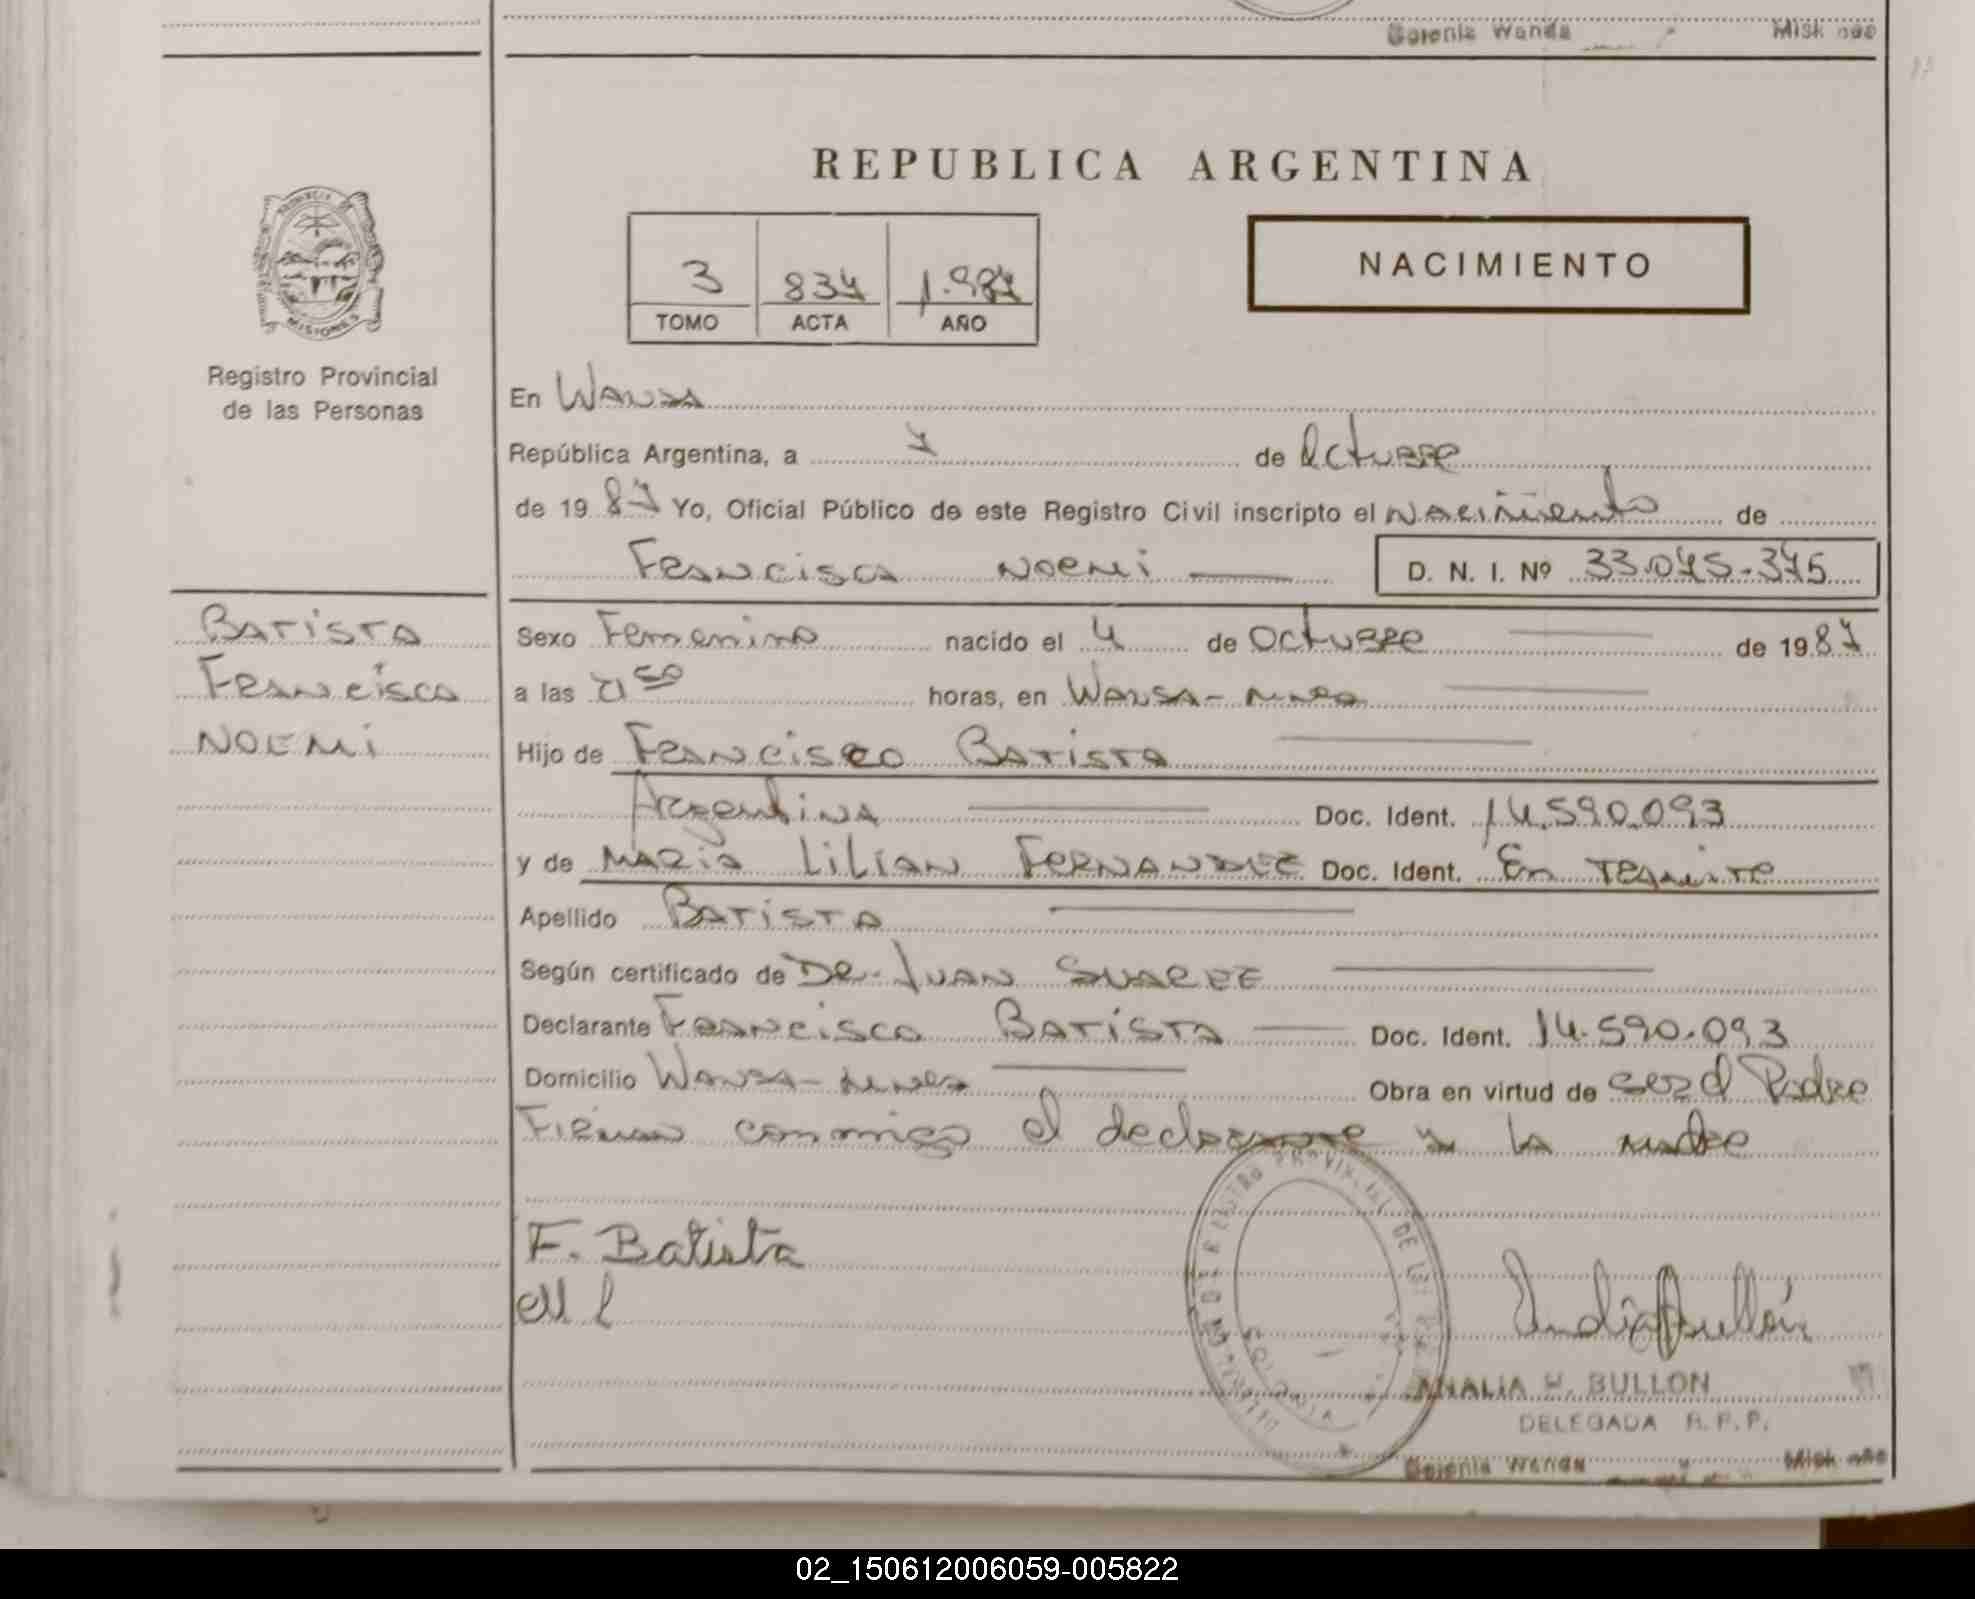 Colonia Wanda
REPUBLICA ARGENTINA
NACIMIENTO
3 837 1.987
TOMO ACTA AÑO
PROVINCIA DE
MISIONES
Registro Provincial
de las Personas
En Wanda
República Argentina, a 7 de Octubre
de 1987 Yo, Oficial Público de este Registro Civil inscripto el Nacimiento de
Francisca Noemi D. N. I. Nº 33.075.375
Batista
Francisca
Noemi
Sexo Femenino nacido el 4 de Octubre de 1987
a las horas, en Wanda-
Hijo de Francisco Batista
Argentina Doc. Ident. 14.590.093
y de Maria Lilian Fernandez Doc. Ident. En Tramite
Apellido Batista
Según certificado de Dr. Juan Suarez
Declarante Francisco Batista Doc. Ident. 14.590.093
Domicilio Wanda- Obra en virtud de ser el Padre
Firman conmigo el declarante y la madre
F. Batista
ANALIA H. BULLON
DELEGADA R.P.P.
Colonia Wanda
02_150612006059-005822